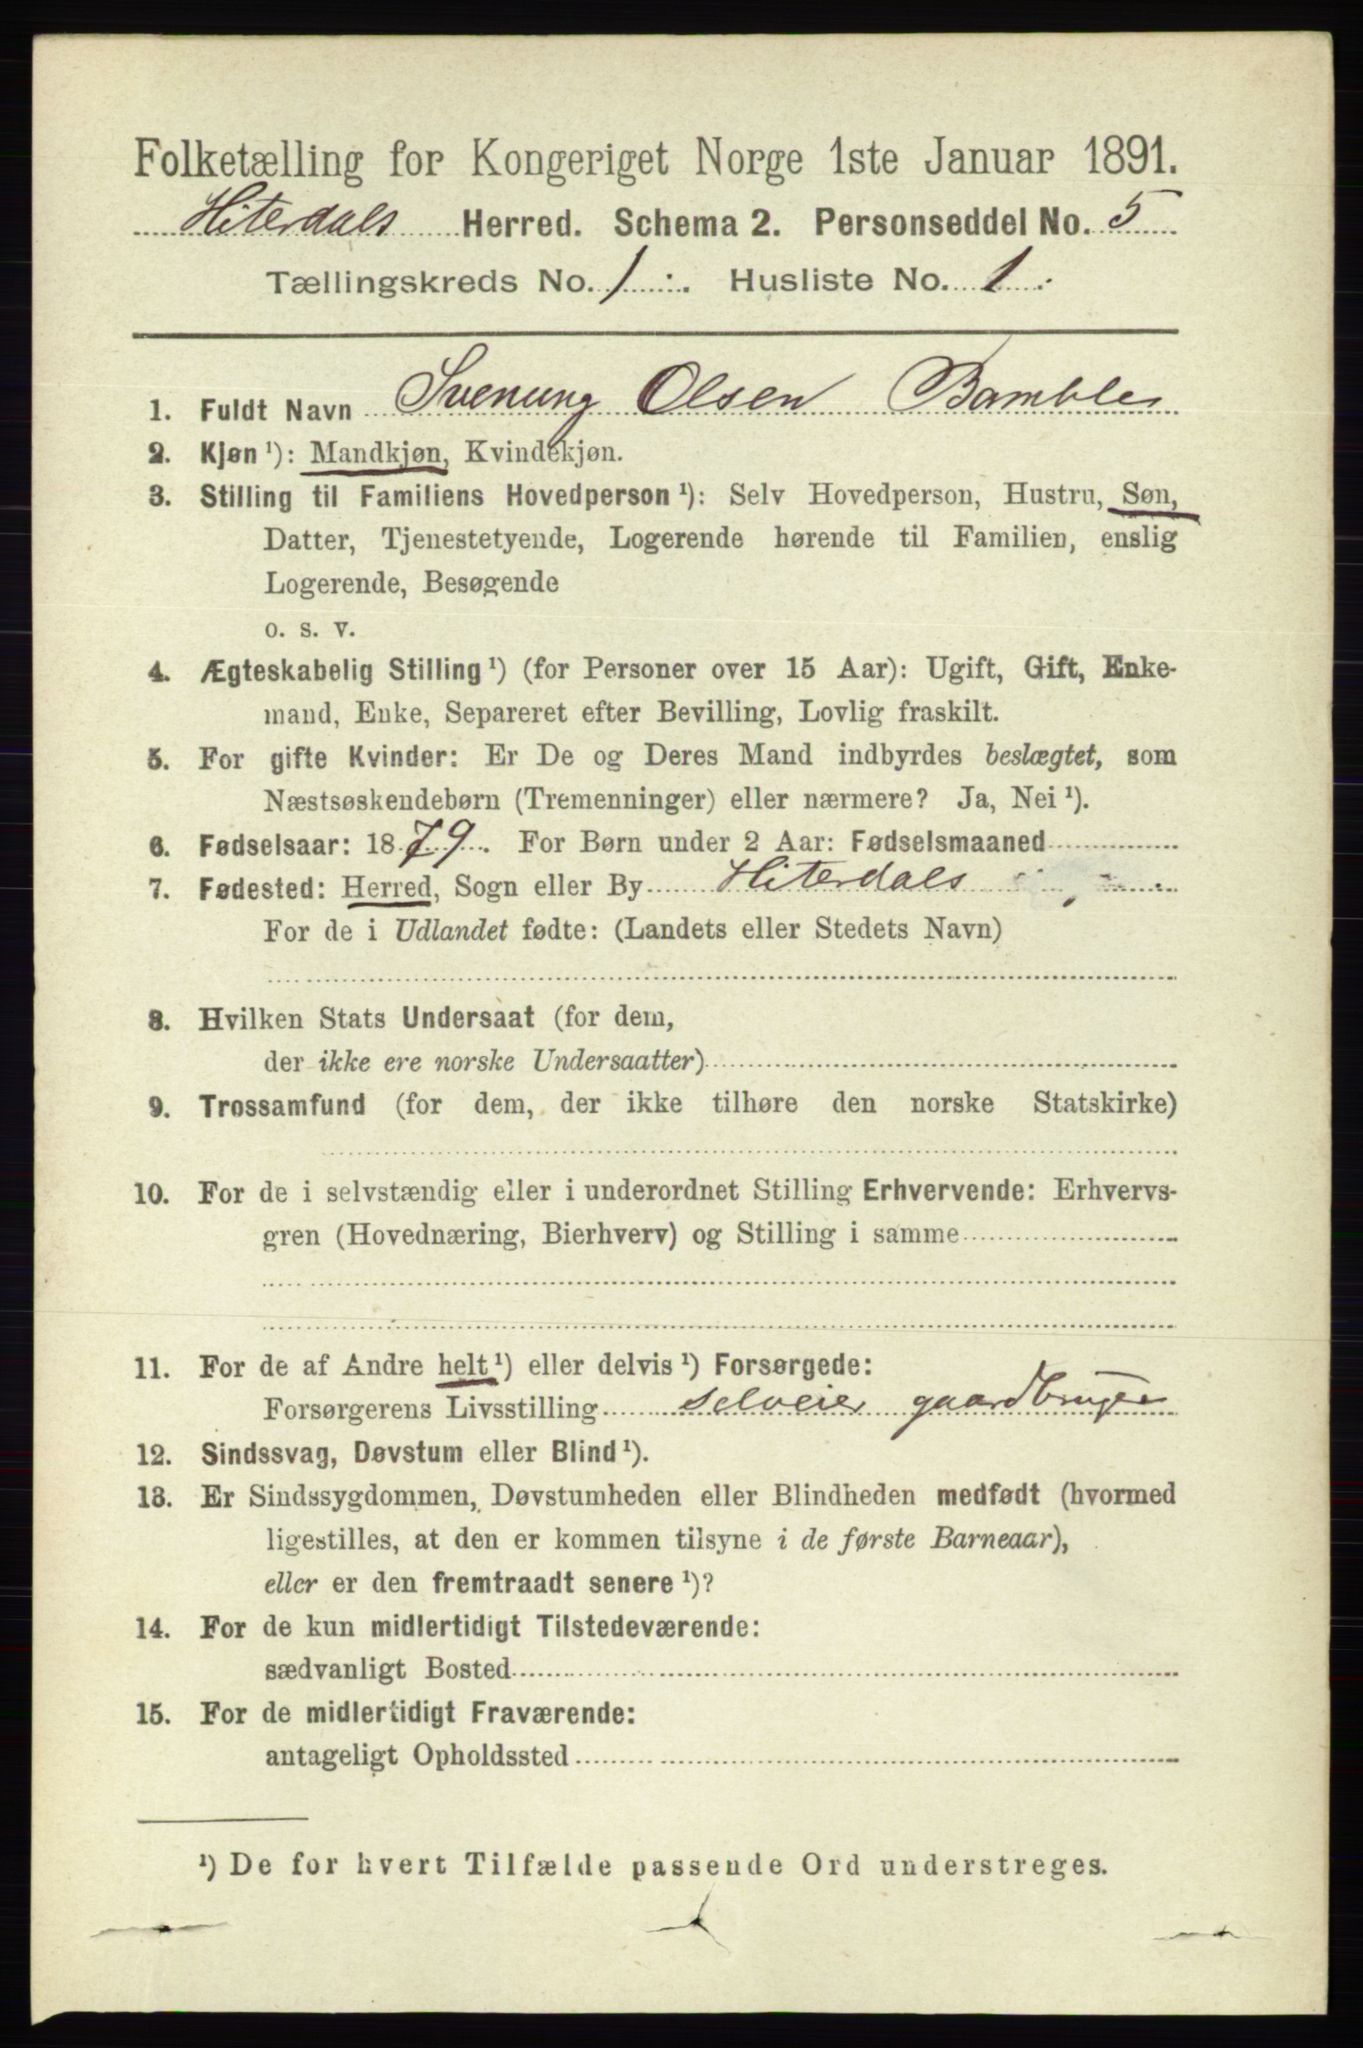 Folketælling for Kongeriget Norge 1ste Januar 1891.
Hiterdals Herred. Schema 2. Personseddel No. 5
Tællingskreds No. 1. Husliste No. 1.
1. Fuldt Navn Svenung Olsen Bamble
2. Kjøn ¹): Mandkjøn, Kvindekjøn.
3. Stilling til Familiens Hovedperson ¹): Selv Hovedperson, Hustru, Søn,
Datter, Tjenestetyende, Logerende hørende til Familien, enslig
Logerende, Besøgende
o. s. v.
4. Ægteskabelig Stilling ¹) (for Personer over 15 Aar): Ugift, Gift, Enke-
mand, Enke, Separeret efter Bevilling, Lovlig fraskilt.
5. For gifte Kvinder: Er De og Deres Mand indbyrdes beslægtet, som
Næstsøskendebørn (Tremenninger) eller nærmere? Ja, Nei ¹).
6. Fødselsaar: 1879. For Børn under 2 Aar: Fødselsmaaned
7. Fødested: Herred, Sogn eller By Hiterdals
For de i Udlandet fødte: (Landets eller Stedets Navn)
8. Hvilken Stats Undersaat (for dem,
der ikke ere norske Undersaatter)
9. Trossamfund (for dem, der ikke tilhøre den norske Statskirke)
10. For de i selvstændig eller i underordnet Stilling Erhvervende: Erhvervs-
gren (Hovednæring, Bierhverv) og Stilling i samme
11. For de af Andre helt ¹) eller delvis ¹) Forsørgede:
Forsørgerens Livsstilling selveier gaardbruger
12. Sindssvag, Døvstum eller Blind ¹).
13. Er Sindssygdommen, Døvstumheden eller Blindheden medfødt (hvormed
ligestilles, at den er kommen tilsyne i de første Barneaar),
eller er den fremtraadt senere ¹)?
14. For de kun midlertidigt Tilstedeværende:
sædvanligt Bosted
15. For de midlertidigt Fraværende:
antageligt Opholdssted
¹) De for hvert Tilfælde passende Ord understreges.